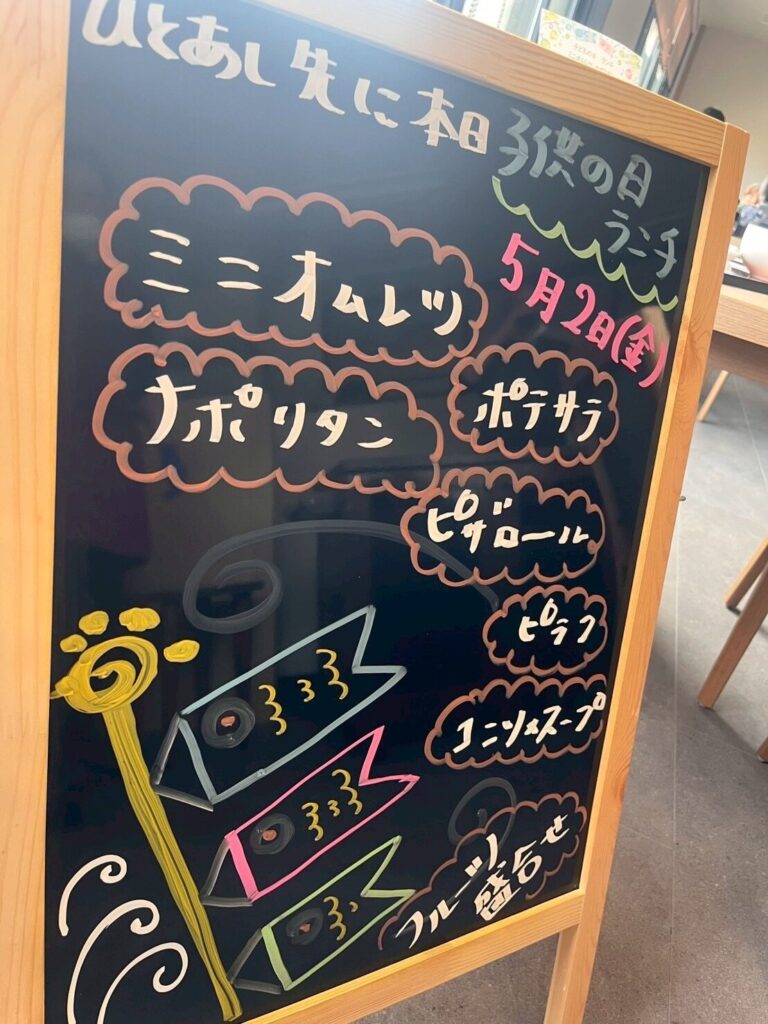 ひとあし先に本日子供の日
ランチ
5月2日(金)
ミニオムレツ
ナポリタン
ポテサラ
ピザロール
ピラフ
コンソメスープ
フルーツ
盛合せ